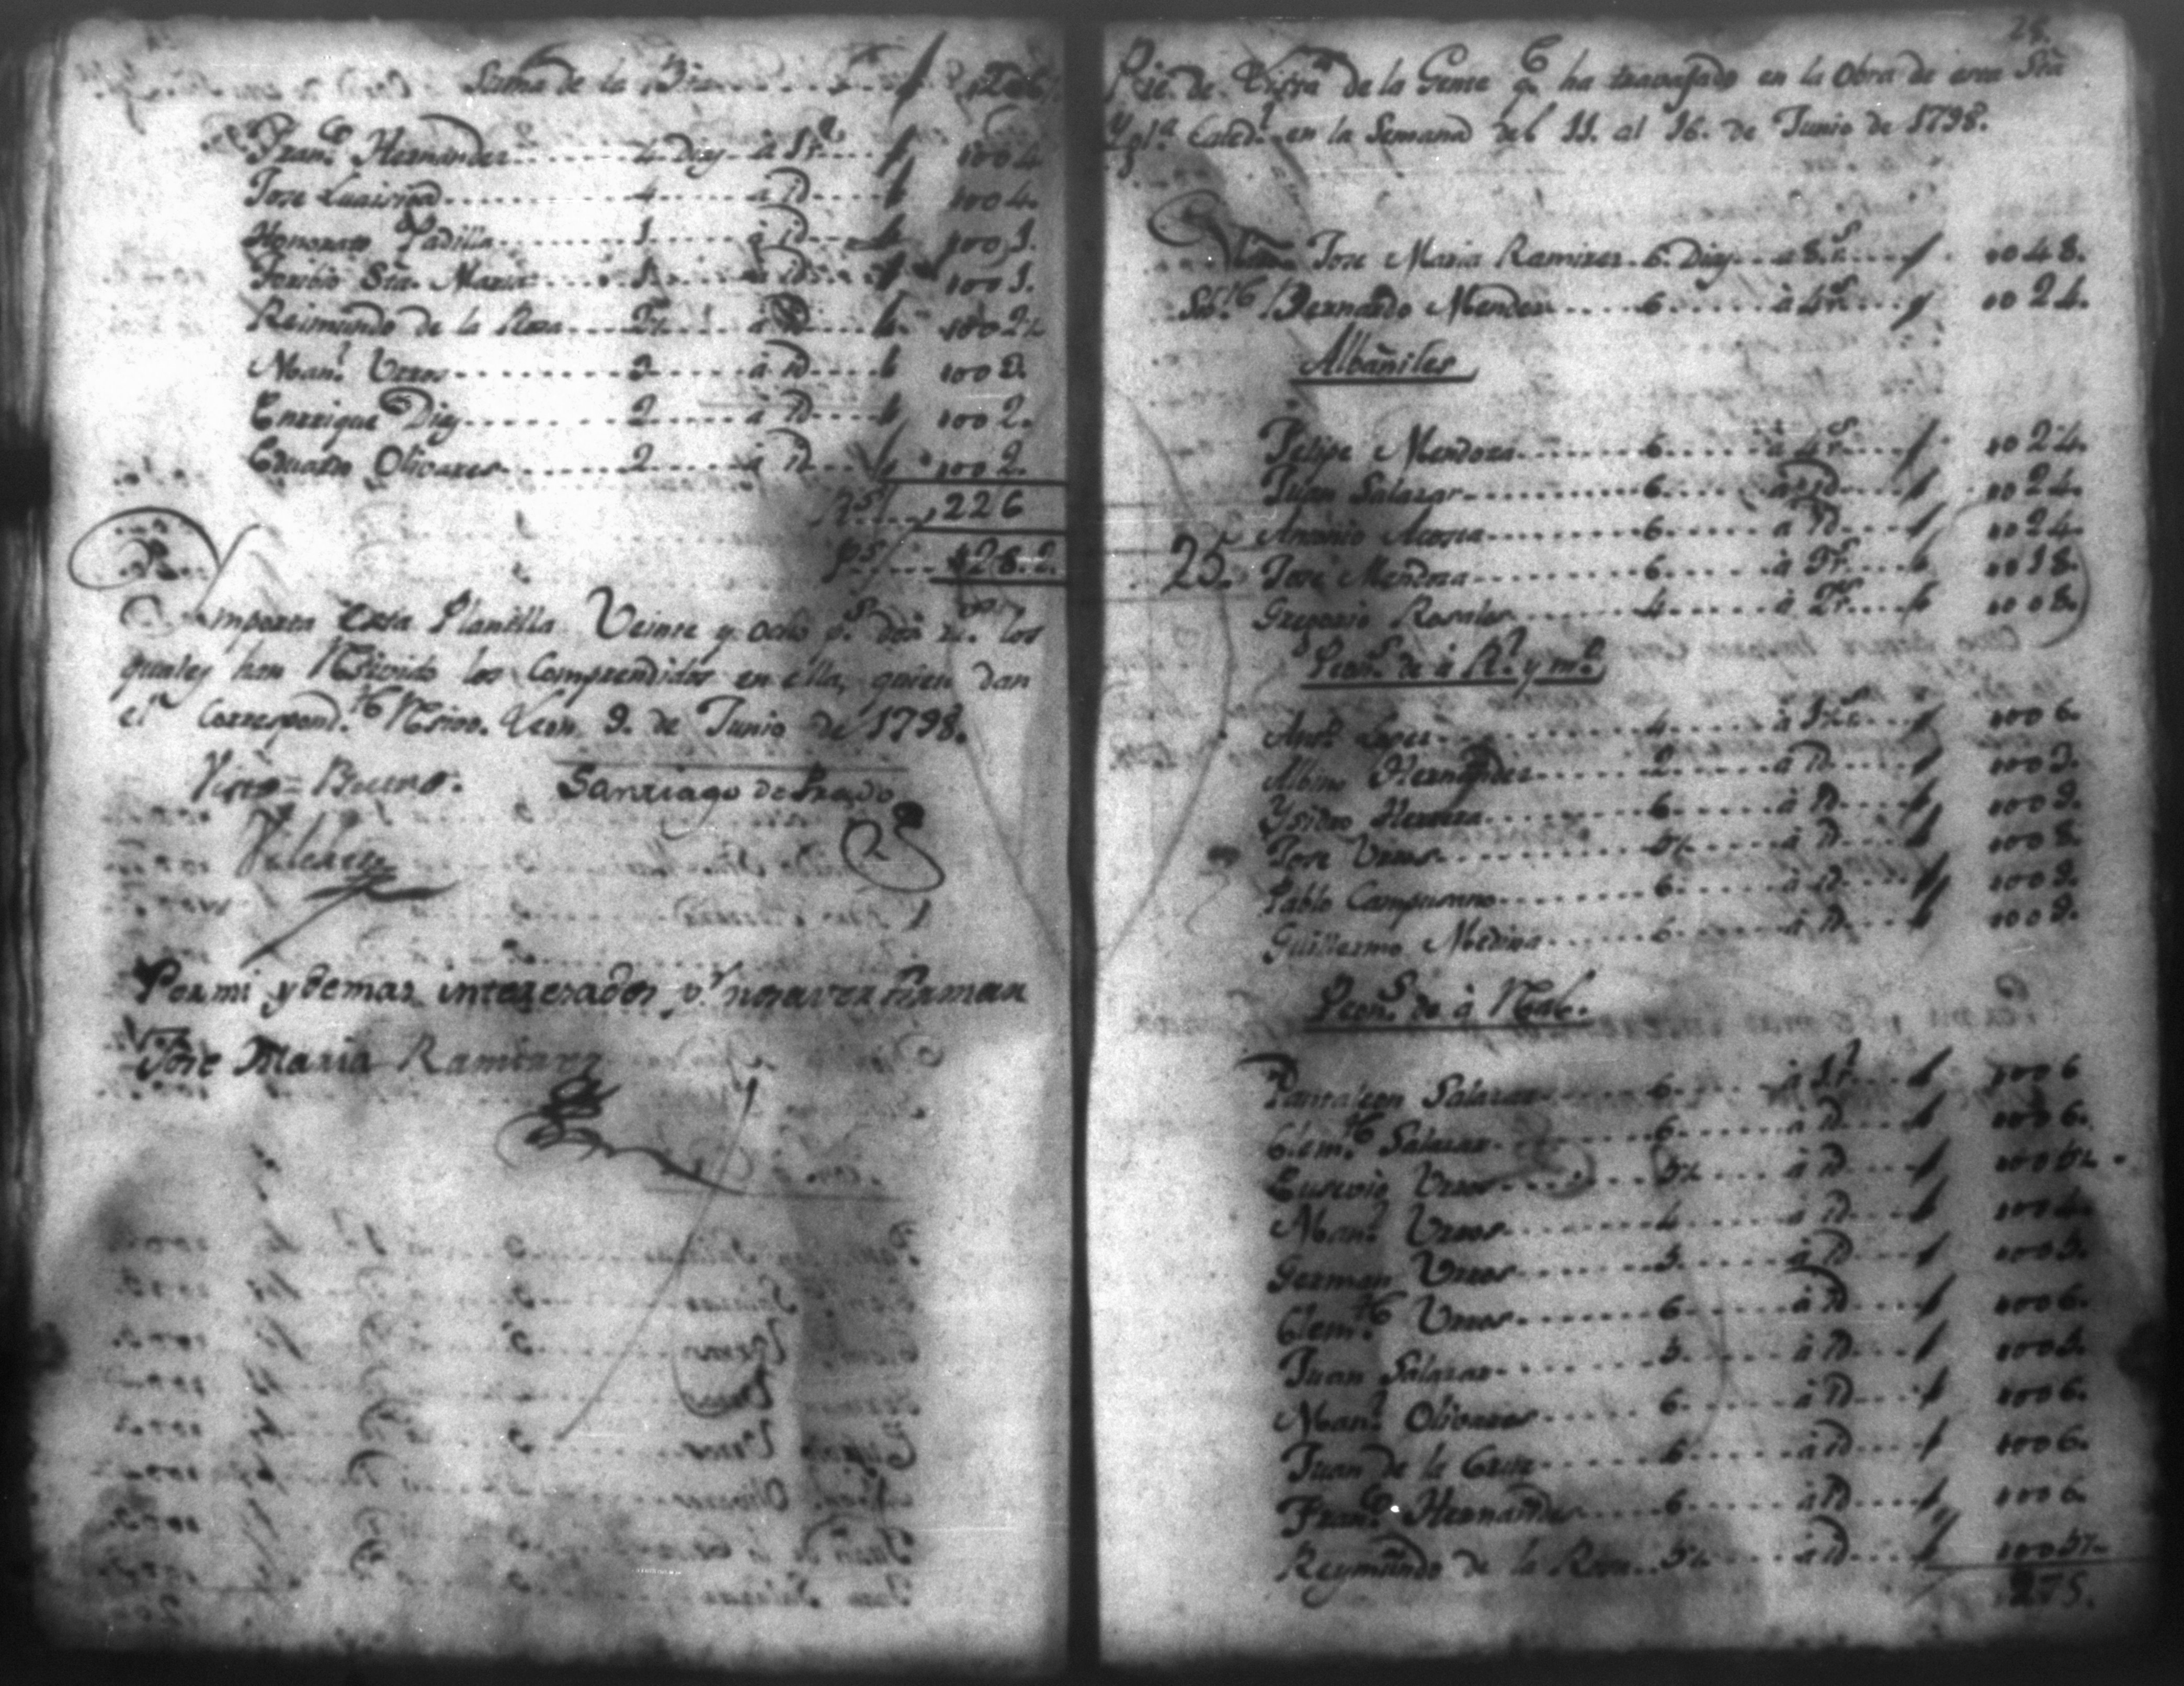 Suma de la Bta
Fran.co Hernandez 4 Dias à 1 r.l 004
Jose Luaisiga 4 à id 004.
Honorato Padilla 1 à id 001.
Toribio Sta. Maria 1 à id 001.
Raimundo de la Rosa 2½ à id 002½
Man.l Urros 2 à id 002.
Enrrique Dias 2 à id 002.
Eduardo Olivares 2 à id 002.
r.s 226
p.s 28.2.
Importa esta Planilla Veinte y ocho p.s dos rr. los
quales han Resivido los Comprendidos en ella, quien dan
el Correspond.te Resivo. Leon 9. de Junio de 1798.
Visto-Bueno. Santiago de Prado
Vilchez
Por mi y demas interesados p.r no saver firmar
Jose Maria Ramirez
28.
Pie de Lista de la Gente q.e ha travajado en la Obra de esta Sta
Ygl.a Cated.l en la Semana del 11. al 16. de Junio de 1798.
Jose Maria Ramires 6 Dias à 8 r.s 0048.
Sb.te Bernardo Mendez 6 à 4 r.s 0024.
Albañiles
Felipe Mendoza 6 à 4 r.s 0024.
Juan Salazar 6 à id 0024.
Antonio Acosta 6 à id 0024.
25. Jose Mendoza 6 à 3 r.s 0018.
Gregorio Rosales 4 à 2 r.s 0008.
Peon.s de à R.l y m.o
Ant.o Lopez 4 à 1½ r.s 006.
Albino Hernandez 2 à id 003.
Ysidro Herrera 6 à id 009.
Jose Urros 5½ à id 008.
Pablo Campusano 6 à id 009.
Guillermo Medina 6 à id 009.
Peon.s de à Real.
Pantaleon Salazar 6 à 1 r.l 006
Clem.te Salazar 6 à id 006.
Eusevio Urros 5½ à id 005½.
Man.l Urros 4 à id 004.
German Urros 5 à id 005.
Clem.te Urros 6 à id 006.
Juan Salazar 5 à id 005.
Man.l Olivares 6 à id 006.
Juan de la Cruz 6 à id 006.
Fran.co Hernandez 6 à id 006.
Reymundo de la Rosa 5½ à id 005½
275.